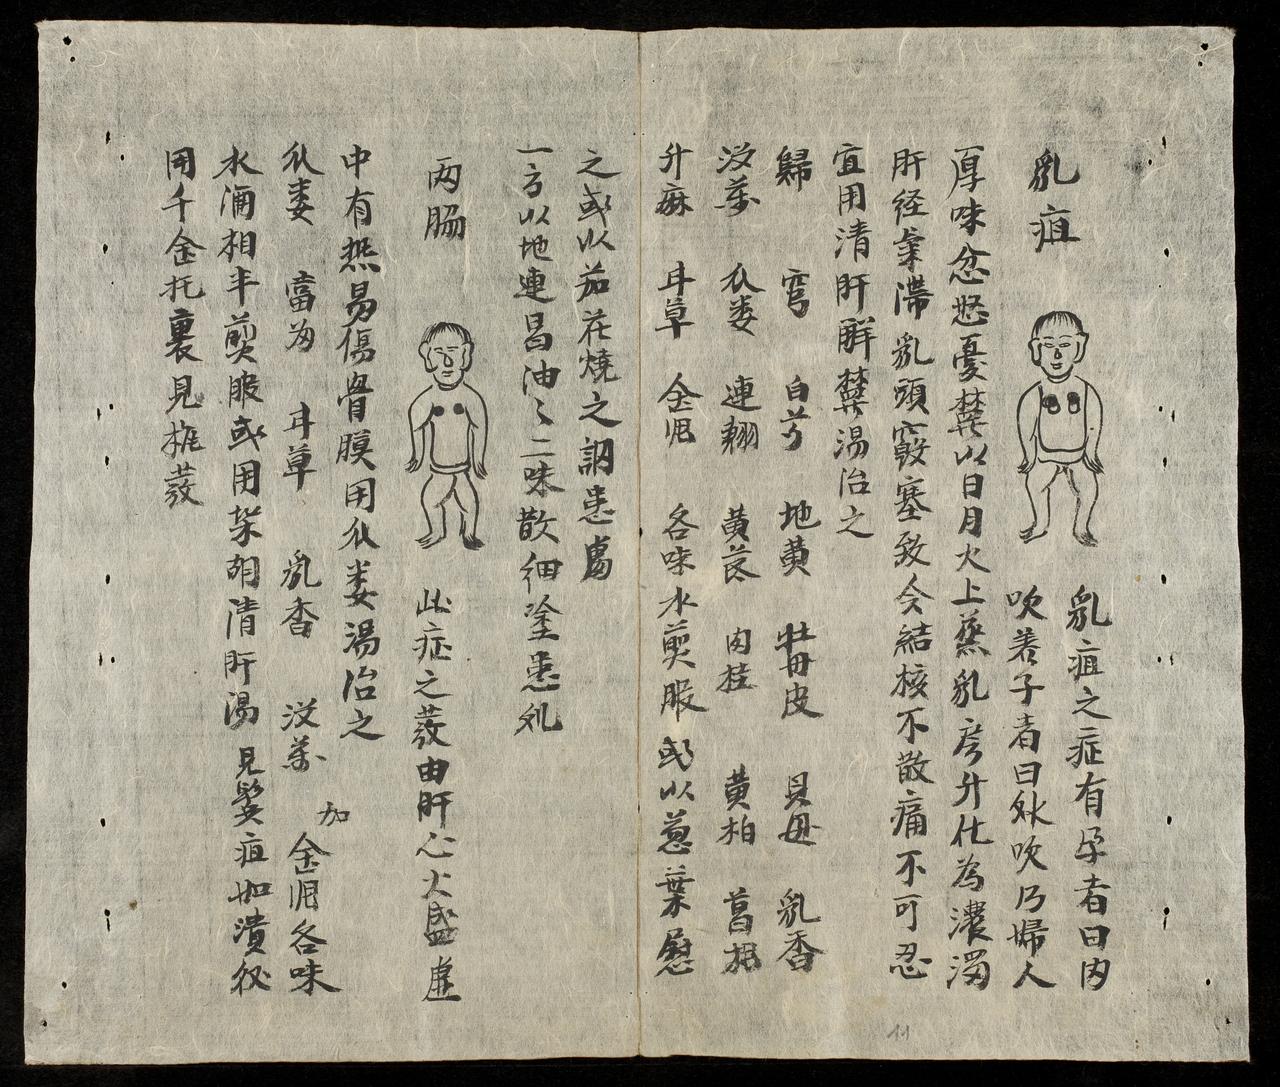 乳疽
乳疽之症有孕者曰内
吹着子者曰外吹乃婦人
厚味忿怒憂欝以日月火上蒸乳房升化為濃濁
肝経氣滯乳頭竅塞致令結核不散痛不可忍
宜用清肝解欝湯治之
歸 芎 白芍 地黄 牡丹皮 貝母 乳香
没藥 瓜蒌 連翹 黄芪 肉桂 黄柏 菖根
升麻 甘草 金銀 各味水煎服或以葱葉慰
之或以茄花燒之調患處
一方以地連昌油〻二味散細塗患処
两脇
此症之發由肝心火盛虚
中有熱易傷骨膜用瓜蒌湯治之
瓜蒌 當歸 甘草 乳香 没藥 加 金銀各味
水酒相半煎服或用柴胡清肝湯 見鬢疽如潰後
用千金托裏見椎發